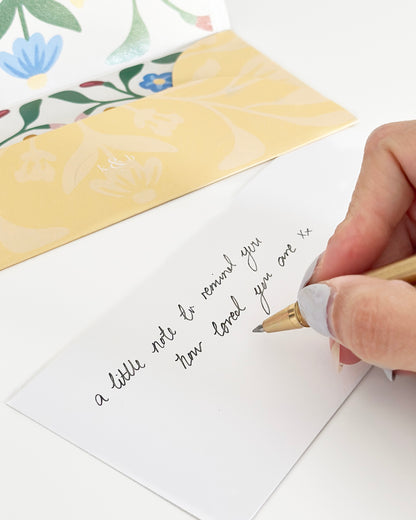 a little note to remind you
how loved you are xx